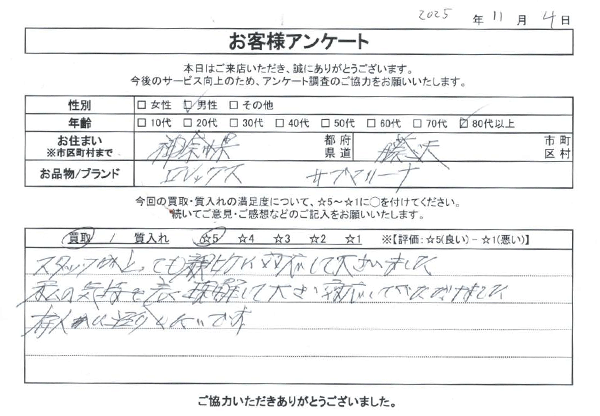 2025 年 11 月 4 日
お客様アンケート
本日はご来店いただき、誠にありがとうございます。
今後のサービス向上のため、アンケート調査のご協力をお願いいたします。
性別 □女性 ☑男性 □その他
年齢 □10代 □20代 □30代 □40代 □50代 □60代 □70代 ☑80代以上
お住まい ※市区町村まで 神奈川県 都府県道 藤沢 市町区村
お品物/ブランド ロレックス サブマリーナ
今回の買取・質入れの満足度について、☆5~☆1に○を付けてください。
続いてご意見・ご感想などのご記入をお願いします。
買取 / 質入れ ☆5 ☆4 ☆3 ☆2 ☆1 ※【評価:☆5(良い)-☆1(悪い)】
スタッフがとっても親切に対応して下さいました
私の気持を 理解して下さり対応していただけました
友人
ご協力いただきありがとうございました。